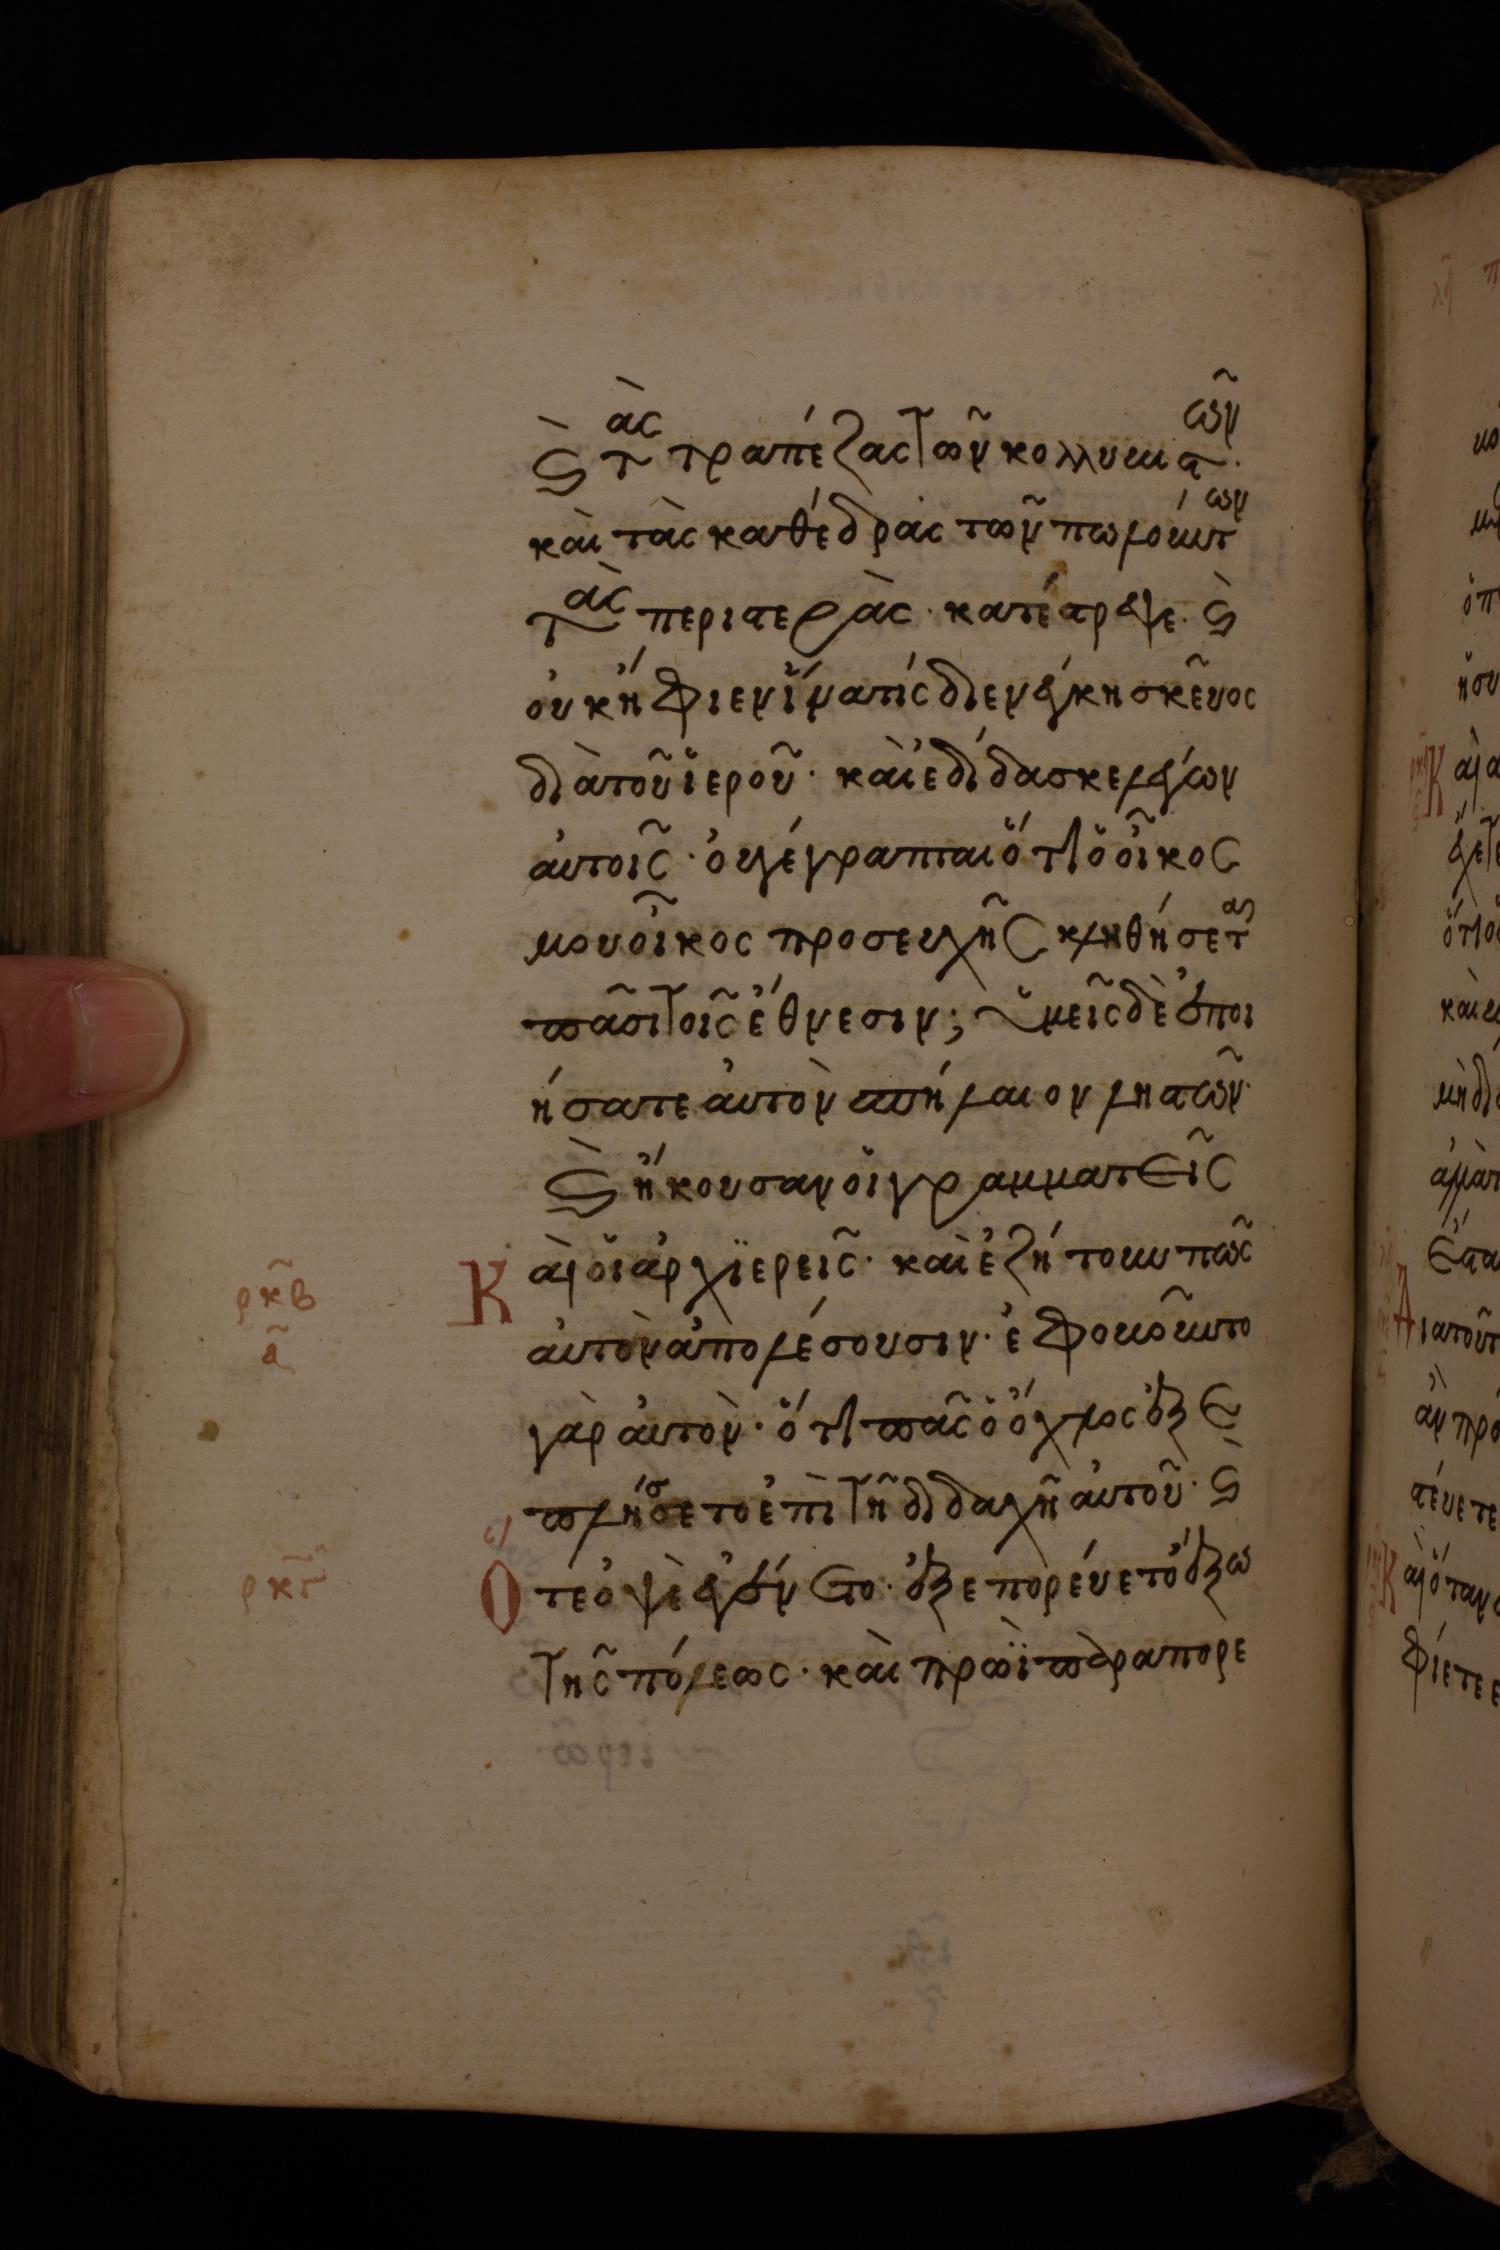 καὶ τὰς τραπέζας τῶν κολλυβιστῶν·
καὶ τὰς καθέδρας τῶν πωλούντων
τὰς περιστερὰς· κατέστρεψε· καὶ
οὐκ ἤφιεν ἵνα τίς διενέγκη σκεῦος
διὰ τοῦ ἱεροῦ· καὶ ἐδίδασκε λέγων
αὐτοῖς· οὐ γέγραπται ὅτι ὁ οἶκος
μου οἶκος προσευχῆς κληθήσεται
πᾶσι τοῖς ἔθνεσιν; ὑμεῖς δὲ ἐποι
ήσατε αὐτὸν σπήλαιον ληστῶν·
καὶ ἤκουσαν οἱ γραμματεῖς
Καὶ οἱ ἀρχϊερεῖς· καὶ ἐζήτουν πῶς
αὐτὸν ἀπολέσουσιν· ἐφοβοῦντο
γὰρ αὐτὸν· ὅτι πᾶς ὁ ὄχλος ἐξε
πλήσσετο ἐπὶ τῆ διδαχῆ αὐτοῦ· καὶ
Ὅτε ὀψὲ ἐγένετο· ἐξεπορεύετο ἔξω
τῆς πόλεως· καὶ πρωῒ παραπορε
ρκβ
α
ρκγ